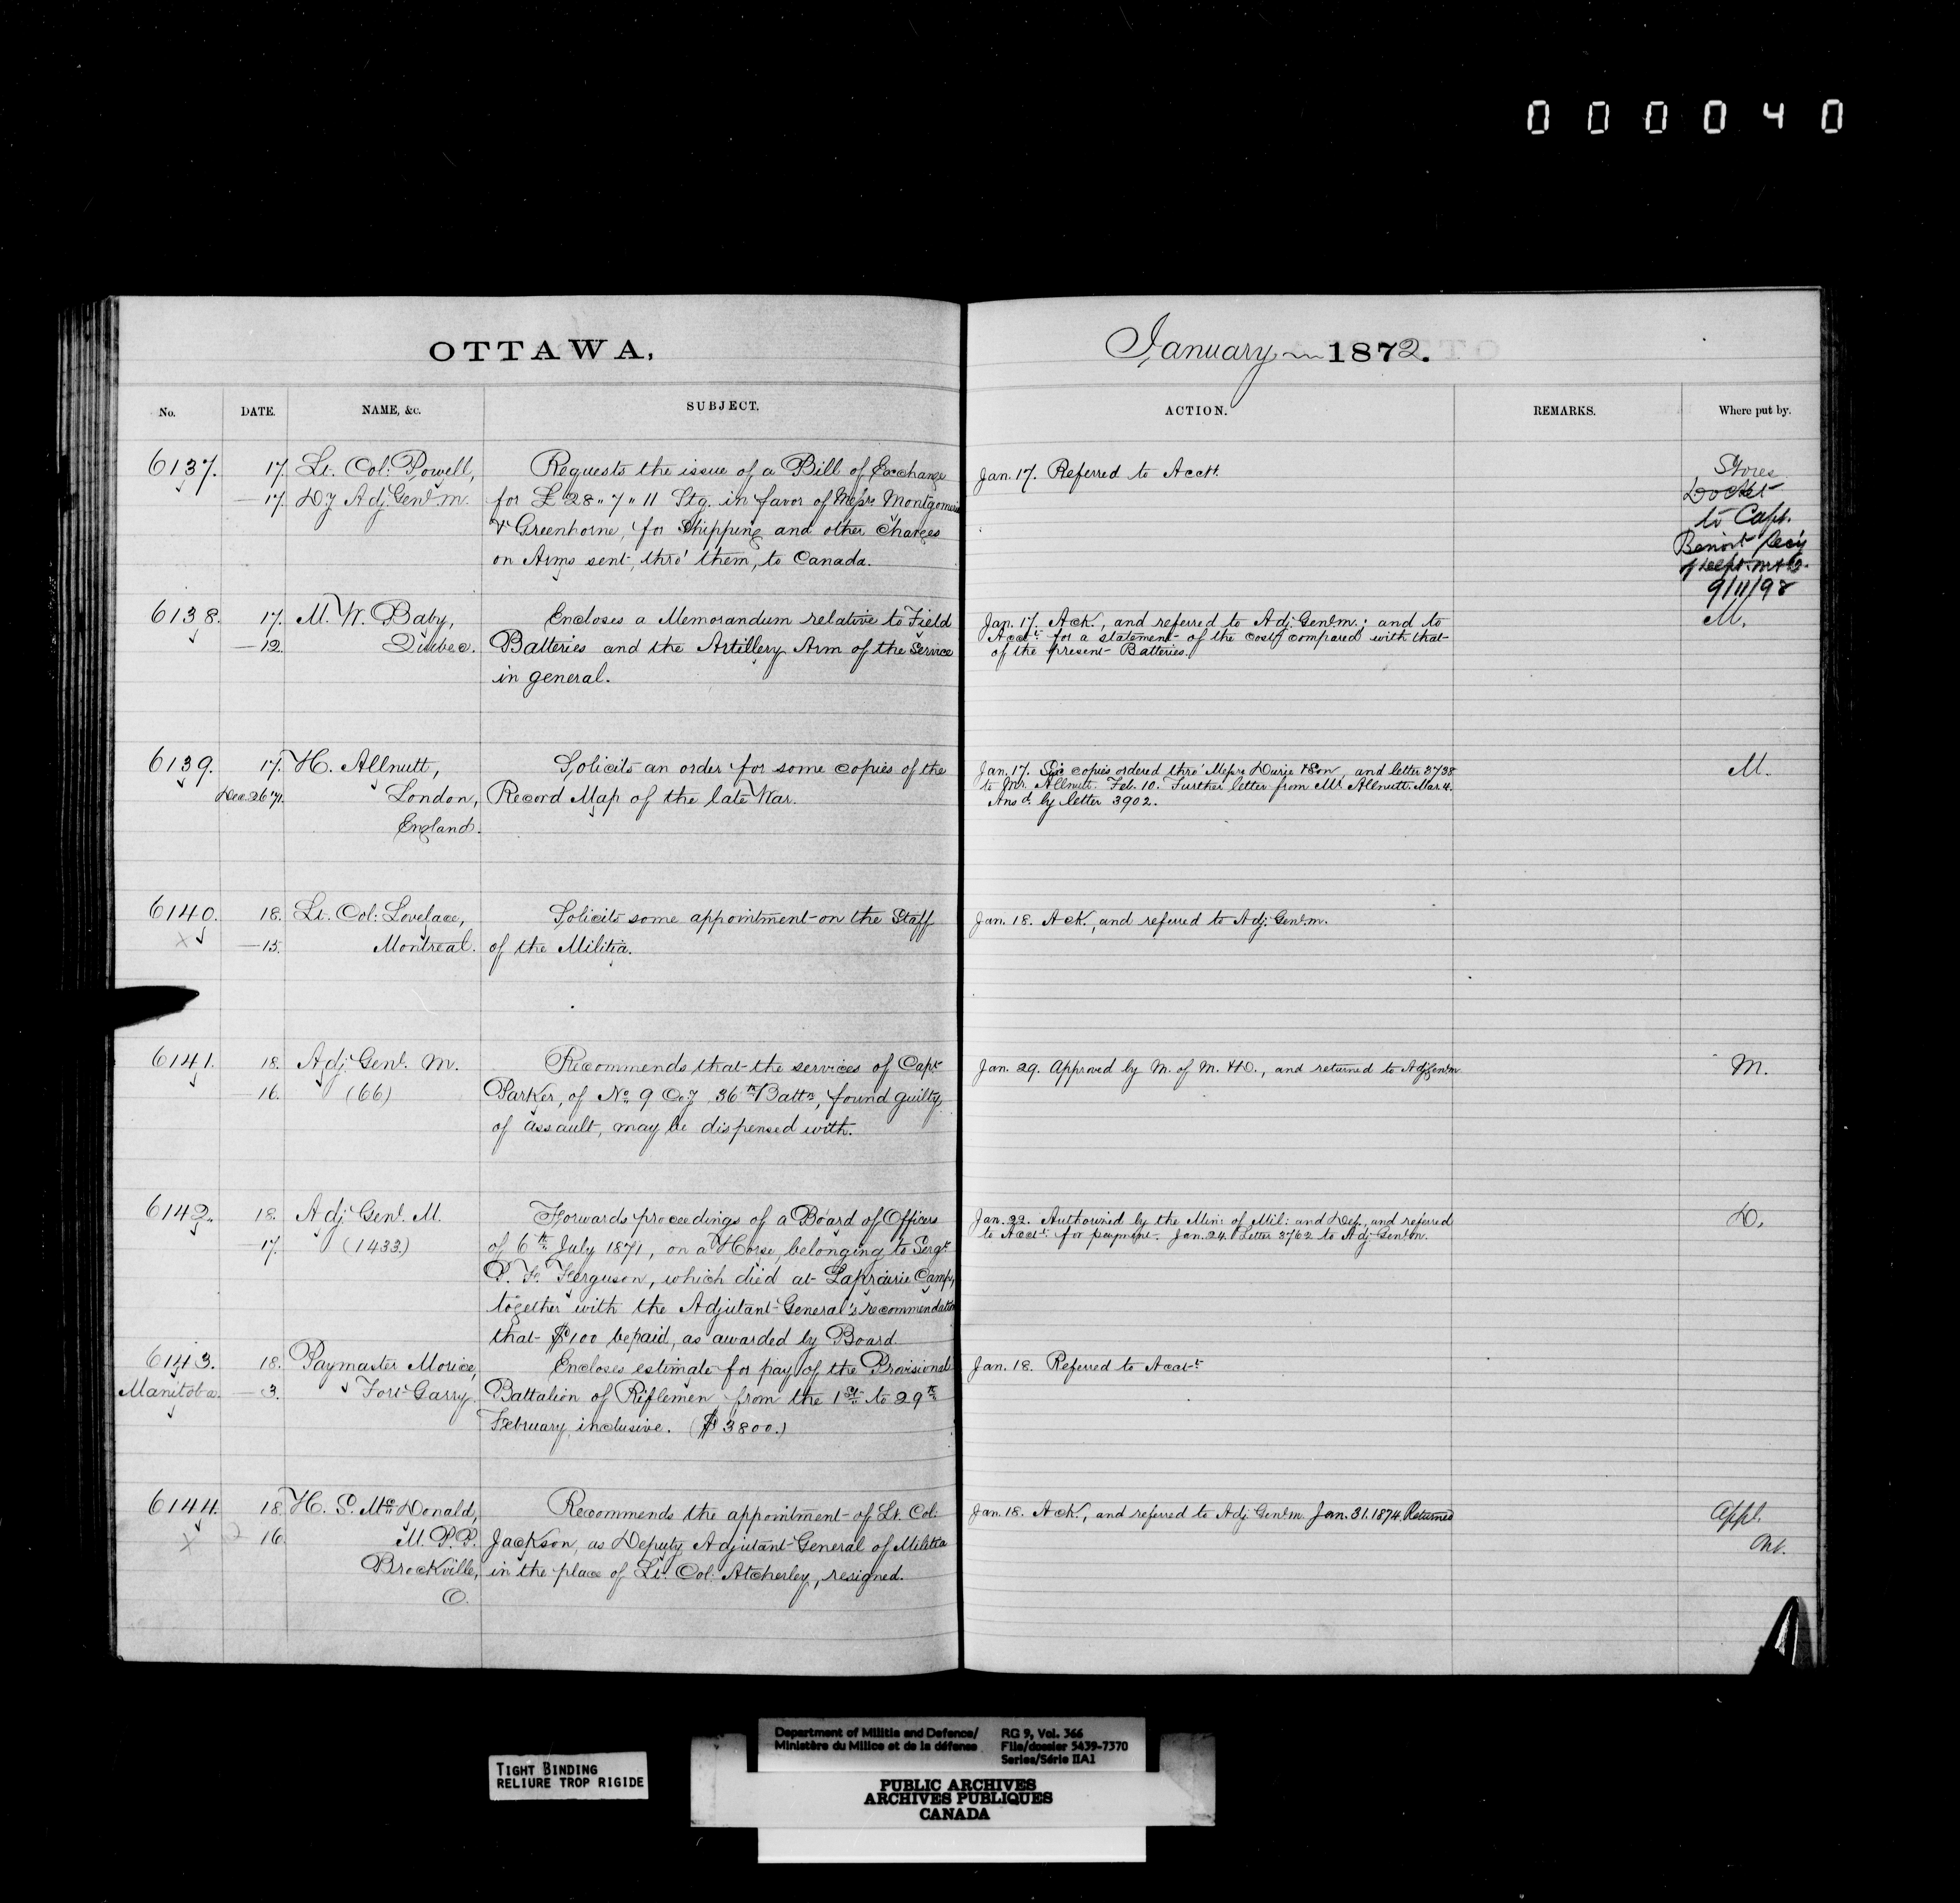 000040
OTTAWA,
No. DATE. NAME, &c. SUBJECT.
6137. 17. Lt. Col: Powell, Requests the issue of a Bill of Exchange
— 17. Dy Adj. Genl. M. for £28 „ 7 „ 11 Stg. in favor of Messrs Montgomerie
& Greenhorne, for Shipping and other Charges
on Arms sent, thro' them, to Canada.
6138. 17. M. W. Baby, Encloses a Memorandum relative to Field
— 12. Quebec. Batteries and the Artillery Arm of the Service
in general.
6139. 17. H. Allnutt, Solicits an order for some copies of the
Dec. 26 '71. London, Record Map of the late War.
England.
6140. 18. Lt. Col: Lovelace, Solicits some appointment on the Staff
x — 15. Montreal. of the Militia.
6141. 18. Adj. Genl. M. Recommends that the services of Capt
16. (66) Parker, of No. 9 Coy 36th Battn, found guilty
of assault, may be dispensed with.
6142. 18. Adj. Genl. M. Forwards proceedings of a Board of Officers
— 17. (1433) of 6th July 1871, on a Horse, belonging to Sergt
P. F. Ferguson, which died at Laprairie Camp,
together with the Adjutant-General's recommendation
that $100 be paid, as awarded by Board
6143. 18. Paymaster Morice, Encloses estimate for pay of the Provisional
Manitoba — 3. Fort Garry. Battalion of Riflemen from the 1st to 29th
February, inclusive. ($3800.)
6144. 18. H. S. McDonald, Recommends the appointment of Lt. Col:
x 16. M. P. P. Jackson, as Deputy Adjutant-General of Militia
Brockville, in the place of Lt. Col: Atcherley, resigned.
O.
January 1872.
ACTION. REMARKS. Where put by.
Jan. 17. Referred to Acctt. Stores
Docket
to Capt.
Benoit Secy
of Dept. M & D.
9/11/98
Jan. 17. Ack., and referred to Adj. Genl. M.; and to M.
Acctt. for a statement of the cost, compared with that
of the present Batteries.
Jan. 17. Six copies ordered thro' Messrs Durie & Son, and letter 3738 M.
to Mr. Allnutt. Feb. 10. Further letter from Mr. Allnutt. Mar. 4.
Ansd. by letter 3902.
Jan. 18. Ack., and referred to Adj. Genl. M.
Jan. 29. Approved by M. of M. & D., and returned to Adj. Genl. M. M.
Jan. 22. Authorized by the Min: of Mil: and Def., and referred D.
to Acctt. for payment. Jan. 24. Letter 3762 to Adj. Genl. M.
Jan. 18. Referred to Acctt.
Jan. 18. Ack., and referred to Adj. Genl. M. Jan. 31. 1874. Returned Appt.
TIGHT BINDING
RELIURE TROP RIGIDE
Department of Militia and Defence/ RG 9, Vol. 366
Ministère du Milice et de la défense File/dossier 5439-7370
Series/Série IIA1
PUBLIC ARCHIVES
ARCHIVES PUBLIQUES
CANADA